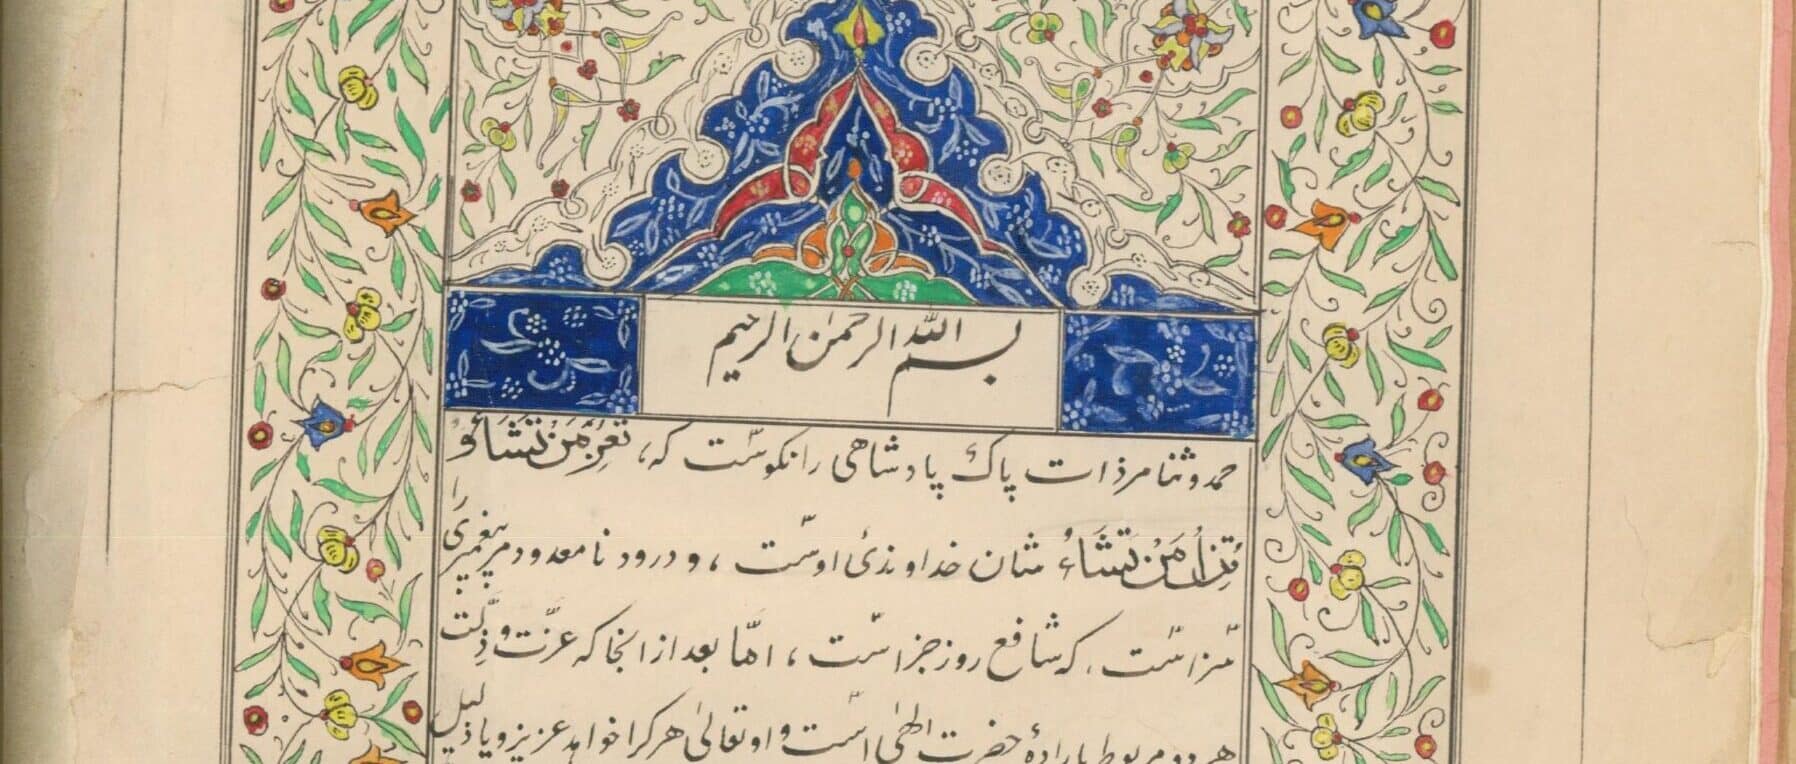 بسم الله الرحمن الرحیم
حمد و ثنا مر ذات پاک پادشاهی را نکوست که، تُعِزُّ مَنْ تَشَاءُ و
تُذِلُّ مَنْ تَشَاءُ شان خداوندئ اوست، و درود نامعدود مر پیغمبری را
سزاست که شافع روز جزاست، امّا بعد از انجا که عزّت و ذِلّت
هر دو مربوط بارادهٔ حضرت الهی است و او تعالیٰ هر کرا خواهد عزیز و یا ذلیل